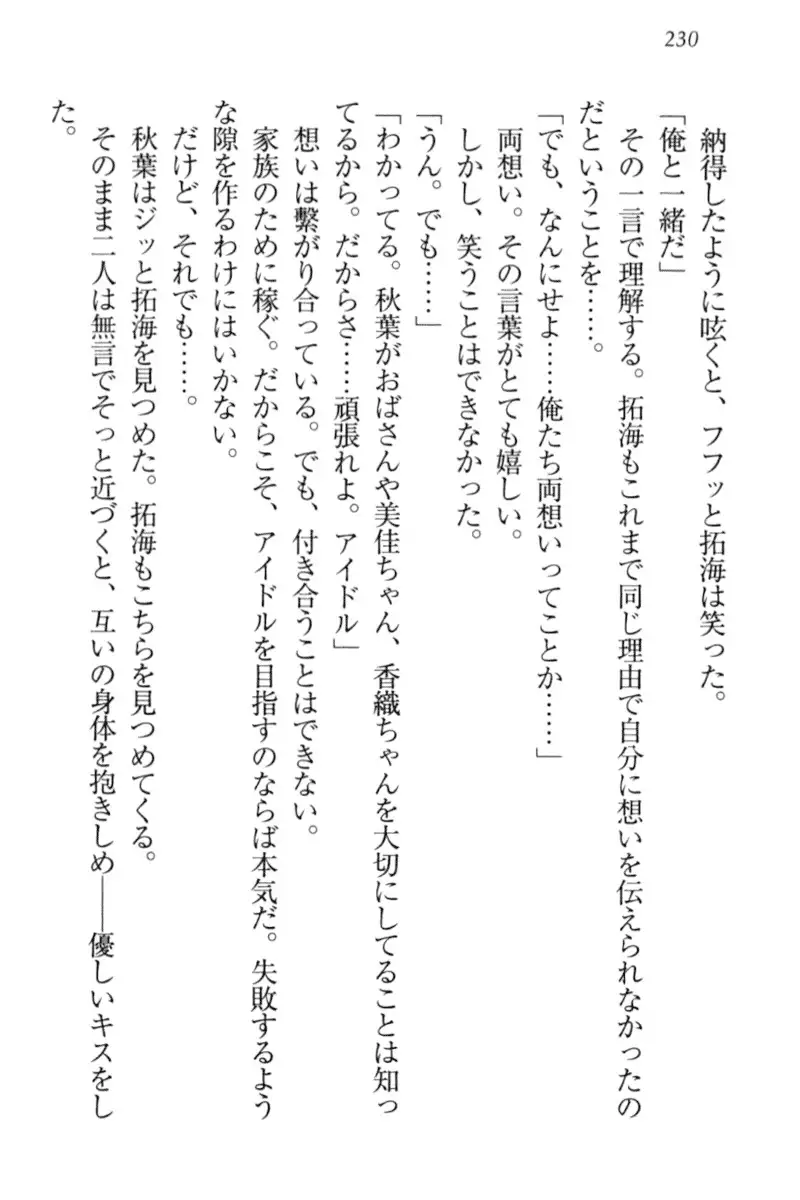 230
納得したように呟くと、フフッと拓海は笑った。
「俺と一緒だ」
その一言で理解する。拓海もこれまで同じ理由で自分に想いを伝えられなかったの
だということを……。
「でも、なんにせよ……俺たち両想いってことか……」
両想い。その言葉がとても嬉しい。
しかし、笑うことはできなかった。
「うん。でも……」
「わかってる。秋葉がおばさんや美佳ちゃん、香織ちゃんを大切にしてることは知っ
てるから。だからさ……頑張れよ。アイドル」
想いは繋がり合っている。でも、付き合うことはできない。
家族のために稼ぐ。だからこそ、アイドルを目指すのならば本気だ。失敗するよう
な隙を作るわけにはいかない。
だけど、それでも……。
秋葉はジッと拓海を見つめた。拓海もこちらを見つめてくる。
そのまま二人は無言でそっと近づくと、互いの身体を抱きしめ――優しいキスをし
た。